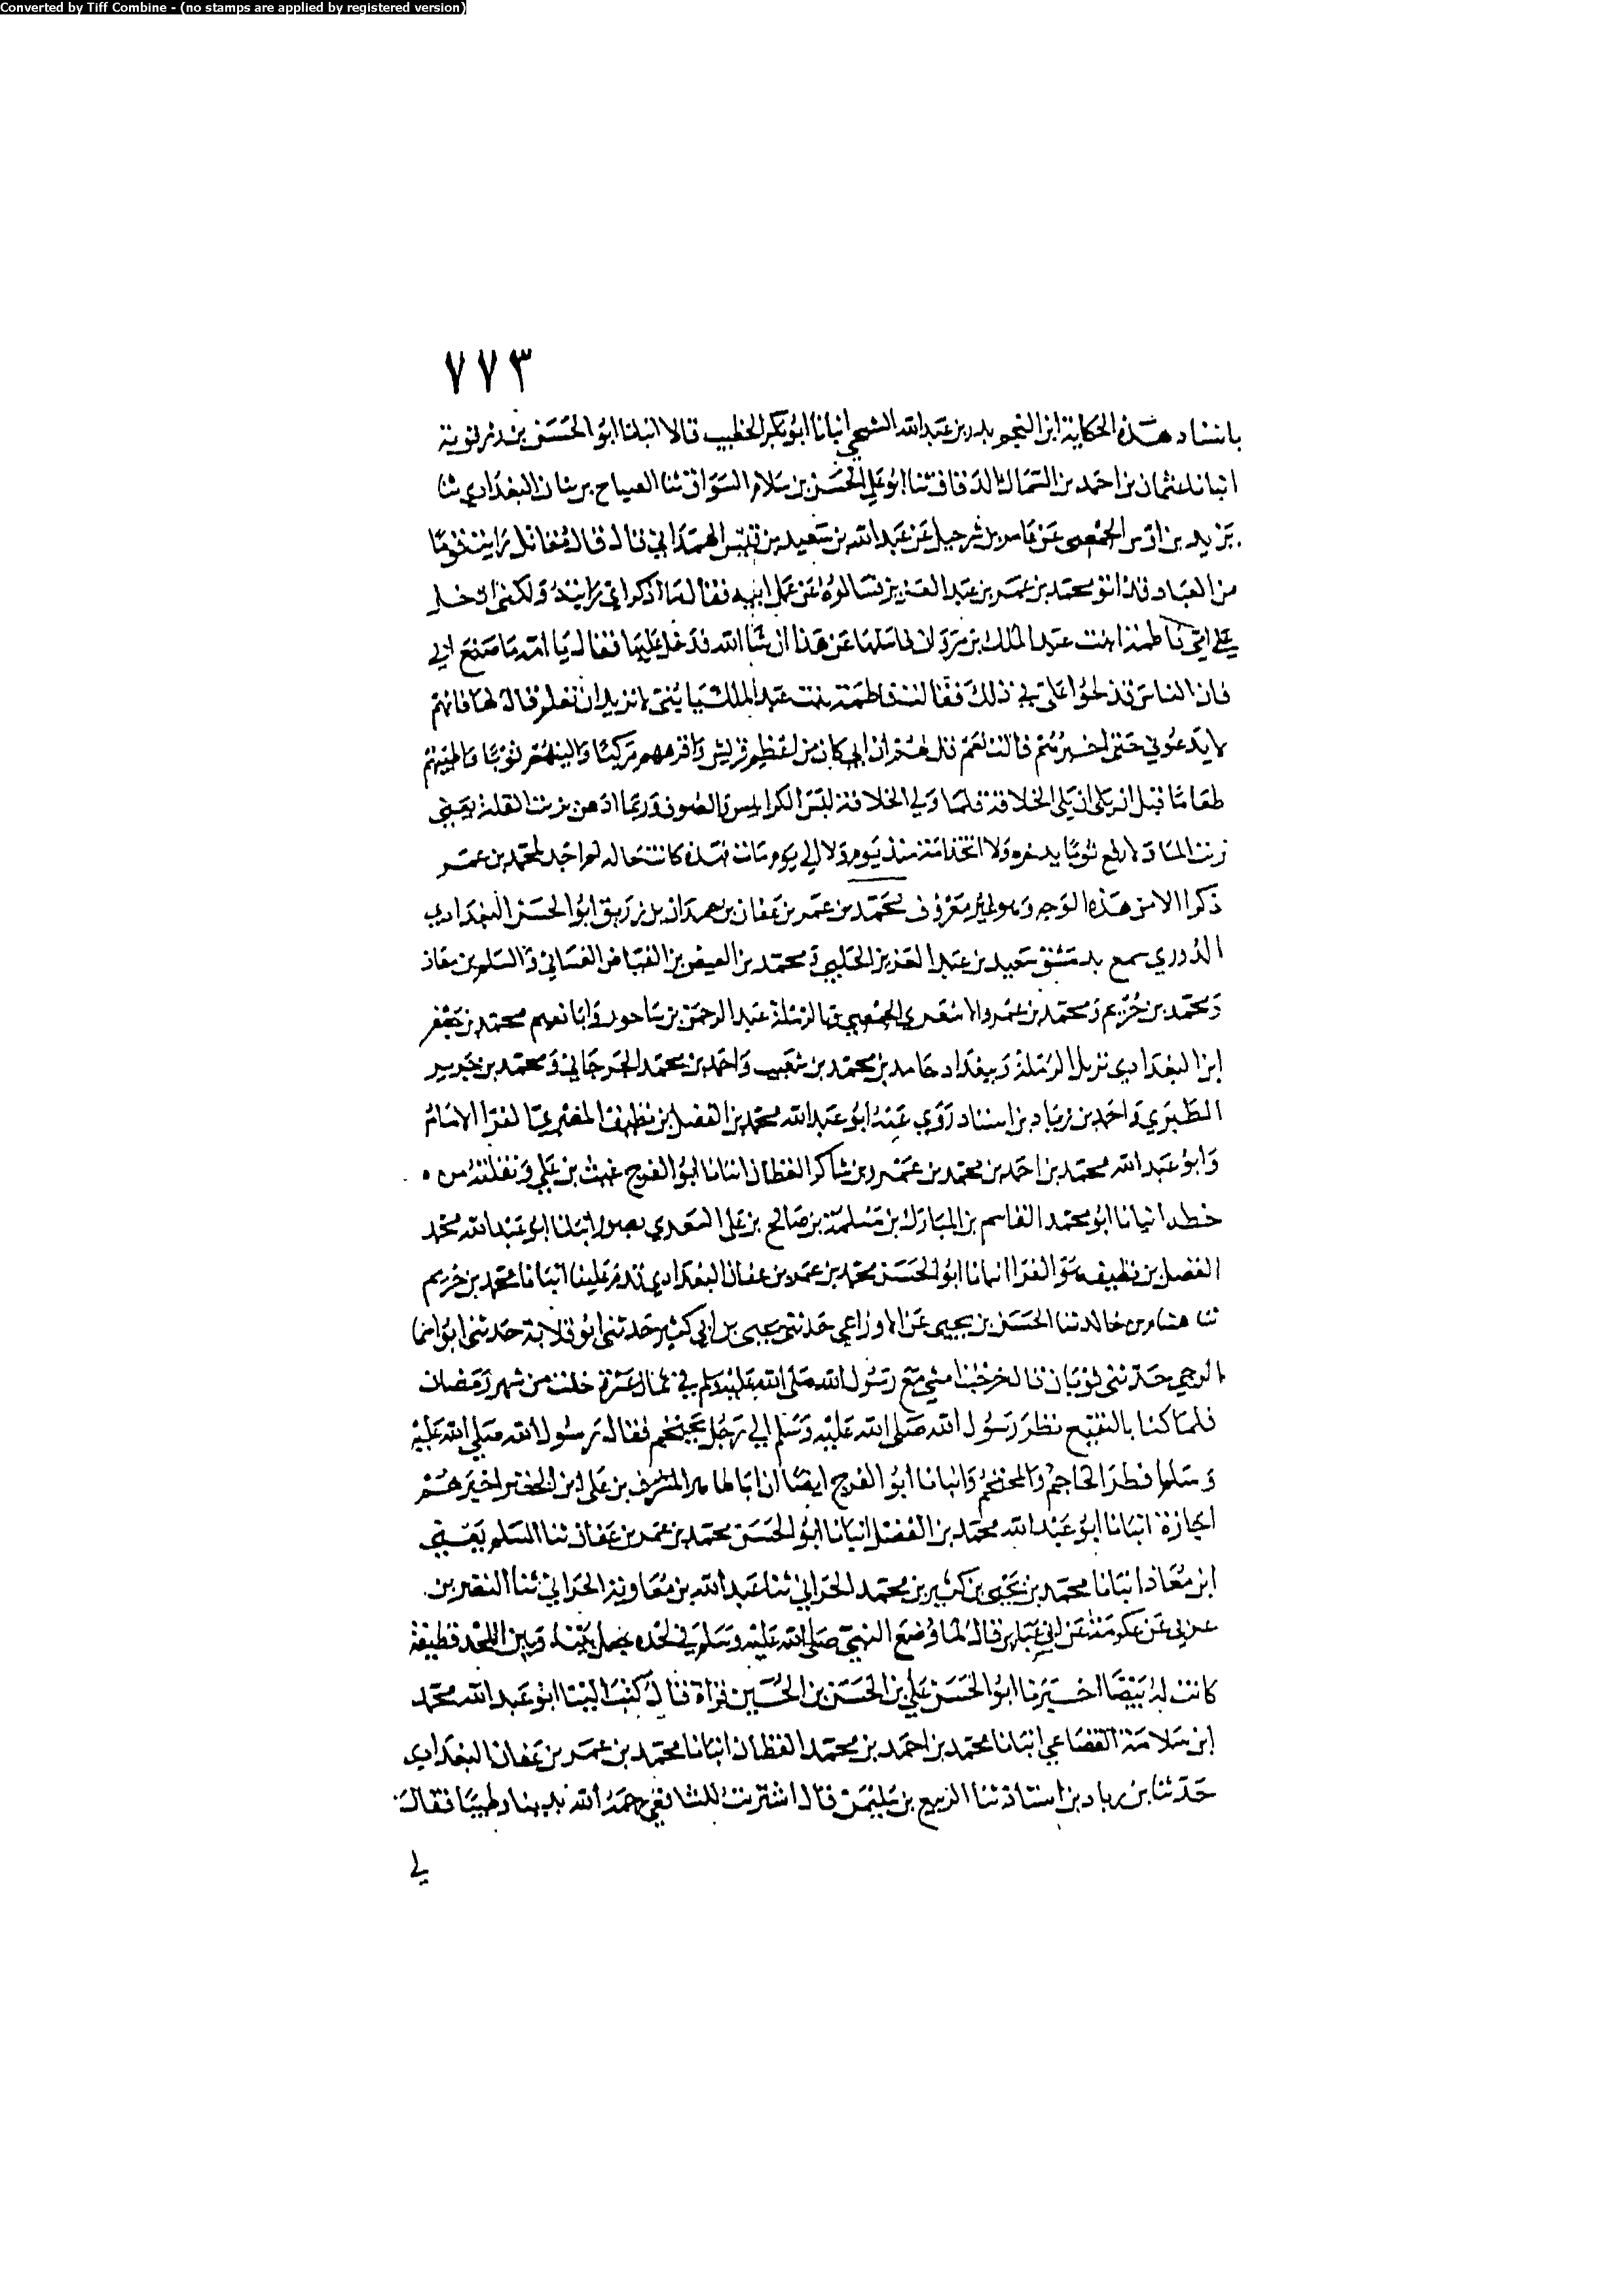 Converted by Tiff Combine - (no stamps are applied by registered version)
٧٧٣
باسناد هذه الحكاية ابن النجم بدر بن عبد الله الشيحي انبانا ابو بكر الخطيب قالا انبانا ابو الحسن بن رزقوية
انبانا عثمان بن احمد بن السماك الدقاق ثنا ابو علي الحسن بن سلام السواق ثنا الصباح بن بنان البغدادي ثنا
يزيد بن اوس الحمصي عن عامر بن شرحيل عن عبد الله بن سعيد بن قيس الهمداني قال قال مقاتل رايت قوما
من العباد قد اتو محمد بن عمر بن عبد العزيز فسالوه عن عمل ابيه فقال ما اذكر اني رايته ولكني ادخل
على امي فاطمة ابنت عبد الملك بن مروان فاسلها عن هذا ان شا الله فدخل عليها فقال يا امه ما صنع ابي
فان الناس قد لحوا علي في ذلك فقالت فاطمة بنت عبد الملك يا بني لا تريد ان تعلم قال لها فانهم
لا يدعوني حتى اخبرتهم قالت نعم قل لهم ان ابي كان من اعظم قريش وافرههم مركبا والينهم ثوبا واطيبهم
طعاما قبل ان يلي الخلافة فلما ولي الخلافة لبس الكرابيس والصوف وربما ادهن بزيت الفلة يعني
زيت الما ولا رفع ثوبا يدخره ولا اتخذ امة منذ يوم ولا الي يوم مات فهذه كانت حاله لم اجد لمحمد بن عمر
ذكرا الا من هذه الوجه وهو غير معروف محمد بن عمر بن عفان بن حمدان بن زريق ابو الحسن البغدادي
الدوري سمع بدمشق سعيد بن عبد العزيز الحلبي ومحمد بن الفيض بن الفياض الغساني والسلم بن معاذ
ومحمد بن خريم ومحمد بن عمرو الاشعري الحمصي وبالرملة عبد الرحمن بن ساحور وابا نعيم محمد بن جعفر
ابن البغدادي نزيل الرملة وببغداد حامد بن محمد بن شعيب واحمد بن محمد الجرجاني ومحمد بن جرير
الطبري واحمد بن زياد بن اسناد روي عنه ابو عبد الله محمد بن الفضل بن نظيف المصري الفرا الامام
وابو عبد الله محمد بن احمد بن محمد بن عمرو بن شاكر القطان انبانا ابو الفرج غيث بن علي ونقلته من
خطه انبانا ابو محمد القاسم بن المبارك بن مسلمة بن صالح بن علي السعدي بصور انبانا ابو عبد الله محمد
الفضل بن نظيف الفرا انبانا ابو الحسن محمد بن عمر بن عفان البغدادي قدم علينا انبانا محمد بن خريم
ثنا هشام بن خالد ثنا الحسن بن يحيى عن الاوزاعي حدثني يحيى بن ابي كثير حدثني ابو قلابة حدثني ابو اسما
الرحبي حدثني ثوبان قال خرجنا مشي مع رسول الله صلى الله عليه وسلم في ثمان عشرة خلت من شهر رمضان
فلما كنا بالبقيع نظر رسول الله صلى الله عليه وسلم الي رجل يحتجم فقال رسول الله صلى الله عليه
وسلم افطر الحاجم والمحتجم وانبانا ابو الفرج ايضا ان ابا طاهر المشرف بن علي ابن الخضر اخبرهم
اجازة انبانا ابو عبد الله محمد بن الفضل انبانا ابو الحسن محمد بن عمر بن عفان ثنا السلم يعني
ابن معاذ انبانا محمد بن يحيى بن كثير بن محمد الحراني ثنا عبد الله بن معاوية الحراني ثنا النضر بن
عربي عن عكرمة عن ابن عباس قال لما وضع النبي صلى الله عليه وسلم في لحده جعل بينه وبين اللحد قطيفة
كانت له بيضا اخبرنا ابو الحسن علي بن الحسن بن الحسين قراة قال كتب الينا ابو عبد الله محمد
ابن سلامة القضاعي انبانا محمد بن احمد بن محمد القطان انبانا محمد بن عمر بن عفان البغدادي
حدثنا بن زياد بن استاذ ثنا الربيع بن سليمن قال اشتريت للشافعي رحمه الله بدينار طيبا فقال
لي